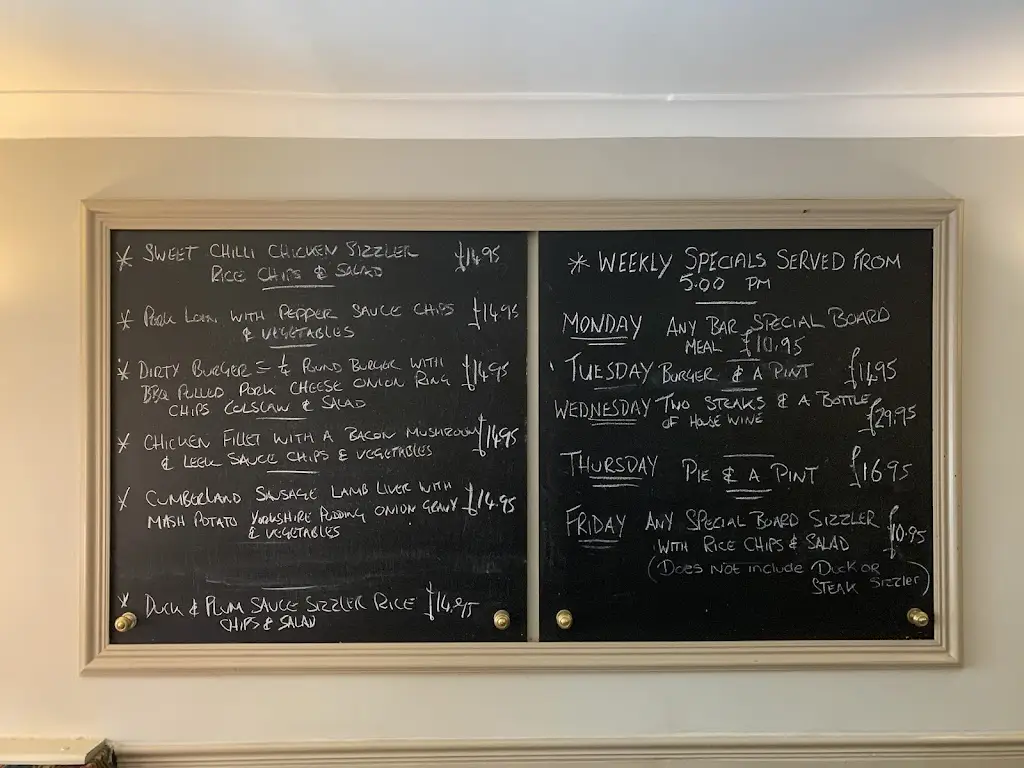 * SWEET CHILLI CHICKEN SIZZLER £14.95
RICE CHIPS & SALAD
* PORK LOIN WITH PEPPER SAUCE CHIPS £14.95
& VEGETABLES
* DIRTY BURGER = ¼ POUND BURGER WITH
BBQ PULLED PORK CHEESE ONION RING £14.95
CHIPS COLSLAW & SALAD
* CHICKEN FILLET WITH A BACON MUSHROOM £14.95
& LEEK SAUCE CHIPS & VEGETABLES
* CUMBERLAND SAUSAGE LAMB LIVER WITH
MASH POTATO YORKSHIRE PUDDING ONION GRAVY £14.95
& VEGETABLES
* DUCK & PLUM SAUCE SIZZLER RICE £14.95
CHIPS & SALAD
* WEEKLY SPECIALS SERVED FROM
5.00 PM
MONDAY ANY BAR SPECIAL BOARD
MEAL £10.95
TUESDAY BURGER & A PINT £14.95
WEDNESDAY TWO STEAKS & A BOTTLE
OF HOUSE WINE £29.95
THURSDAY PIE & A PINT £16.95
FRIDAY ANY SPECIAL BOARD SIZZLER
WITH RICE CHIPS & SALAD £10.95
(DOES NOT INCLUDE DUCK OR
STEAK SIZZLER)